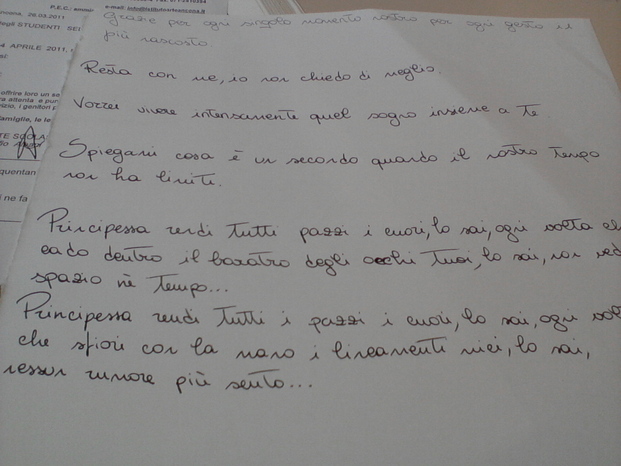 P.E.C.:
e-mail: info@istitutoarteancona.it
Ancona, 26.03.2011
degli STUDENTI
4 APRILE 2011,
offrire loro un se
ra attenta e pun
vizio, i genitori p
famiglie, le le
TE SCUOLA
quentan
i ne fa
Grazie per ogni singolo momento nostro per ogni gesto il
più nascosto
Resta con me, io non chiedo di meglio.
Vorrei vivere intensamente quel sogno insieme a te.
Spiegami cosa è un secondo quando il nostro tempo
non ha limiti.
Principessa rendi tutti pazzi i cuori, lo sai, ogni volta
cado dentro il baratro degli occhi tuoi, lo sai, non ved
spazio nè tempo...
Principessa rendi tutti i pazzi i cuori, lo sai, ogni volt
che sfiori con la mano i lineamenti miei, lo sai,
nessun rumore più sento...